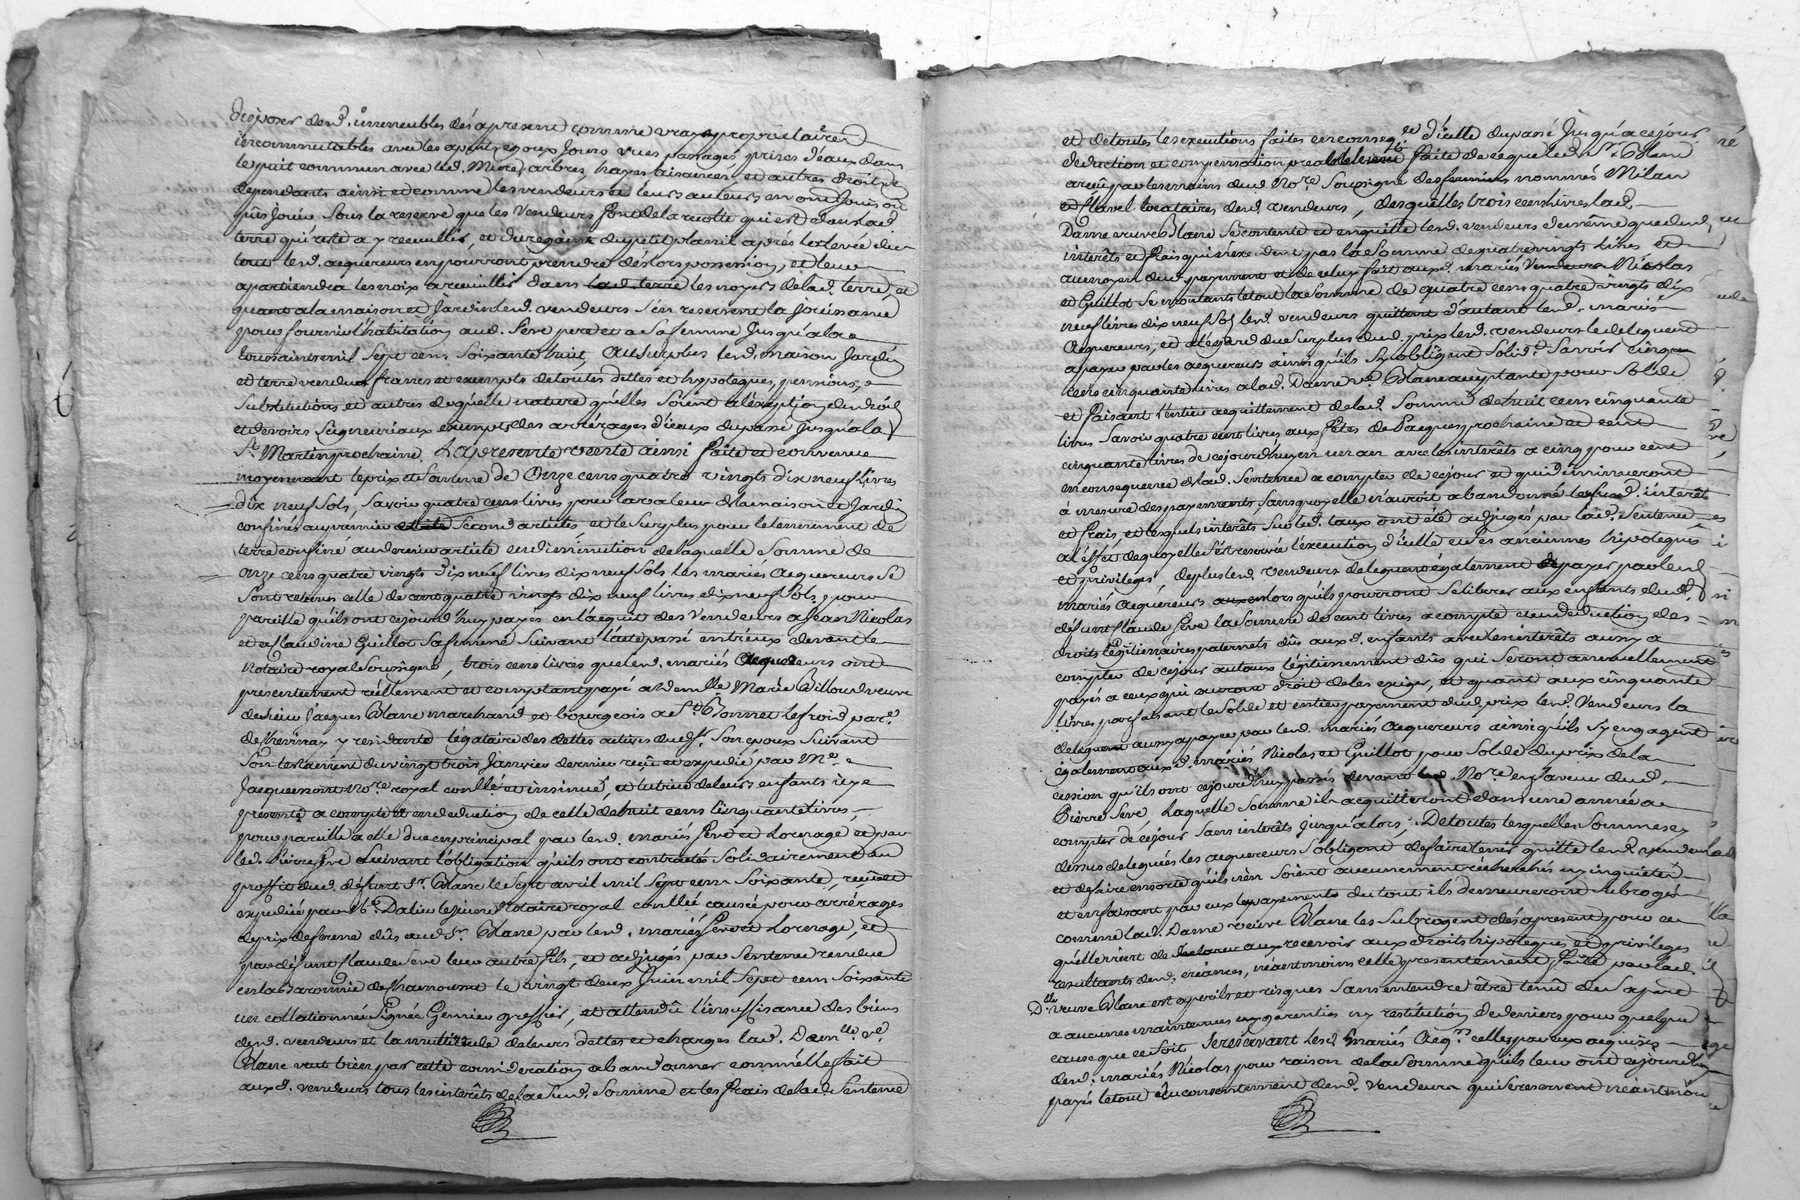 disposer desd. immeubles dés apresent comme vrays proprietaires
incommutables avec les apents, egoux Jours vües passages prises d'eaux dans
le puit commun avec led. Mure, arbres, hayes taisances, et autres droits
dependants ainsi et comme les vendeurs et leurs auteurs en ont Jouis ou
pû Jouir. Sous la reserve que les vendeurs font de la recolte qui est dans lad.
terre qui reste a y recueillir, et du regain du petit plan il aprés la levée du
tout led. acquereurs en pourront prendre dès lors possession, et leur
apartiendra les noix a receuillir dans lad. terre les noyers de lad. terre, et
quant a la maison et Jardin led. vendeurs s'en reservent la Jouissance
pour fournir l'habitation aud. Seve pere et a sa femme Jusqu'a la
toussaints mil sept cens soixante huit, Au surplus lesd. maison Jardin
et terre vendus francs et exempts de toutes dettes et hypoteques, pensions,
substitutions et autres de quelle nature qu'elles soient a l'exeption du droit
et devoirs seigneuriaux exempts des arrérages d'iceux du passé jusqu'a la
St. Martin prochaine. La presente vente ainsi faite et convenue
moyennant le prix et somme de Onze cens quatre vingts dix neuf livres
dix neuf sols, savoir quatre cens livres pour la valeur de la maison et Jardin
confinés au premier et second articles et le surplus pour le tenement de
terre confiné au dernier article en diminution de laquelle somme de
onze cens quatre vingts dix neuf livres dix neuf sols les mariés acquereurs se
sont retenus celle de cent quatre vingts dix neuf livres dix neuf sols, pour
pareille qu'ils ont cejourd'huy payés en l'acquit des Vendeurs a Jean Nicolas
et a Claudine Guillot sa femme suivant l'acte passé entr'eux devant le
Notaire royal soussigné, trois cens livres que led. mariés acquereurs ont
presentement réellement et comptant payé a demlle Marie Billoud veuve
de sieur Jacques Blanc marchand et bourgeois a St. Bonnet le froid par.
de Chevinay y residante legataire des dettes actives dud. Sr. son epoux suivant
son testament du vingt trois Janvier dernier reçû et expedié par Me.
Jacquemont Nore. royal controllé et insinué, et tutrice de leurs enfants icy
presente a compte et en deduction de celle de huit cens cinquante livres,
pour pareille a elle due en principal par led. mariés Seve et Hormage et par
led. Pierre Seve suivant l'obligation qu'ils ont contractés solidairement au
proffit dud. deffunt Sr. Blanc le sept avril mil sept cens soixante, reçûe et
expediée par Me. Dalin le jeune Notaire royal controllée causée pour arrérages
de prix de ferme dûs aud. Sr. Blanc par led. mariés Seve et Hormage, et
par deffunt Claude Seve leur autre fils, et adjugés par sentence rendue
en la Baronnie de Chamousset le vingt deux Juin mil sept cens soixante
un collationnée signée Gernier greffier, et attendû l'insuffisance des biens
desd. vendeurs et la multitude de leurs dettes et charges lad. Demlle. ve.
Blanc veut bien par cette consideration abandonner comm'elle fait
auxd. vendeurs tous les interêts de la susd. somme et les frais de lad. sentence
et de toutes les executions faites en conseqce. d'icelle du passé Jusqu'a ce jour
deduction et compensation prealablement faite de ce que led. Sr. Blanc
a reçû par les mains dud. Nore. soussigné des fermiers nommés Milan
et Clavel locataires desd. vendeurs, desquelles trois cens livres lad.
Dame veuve Blanc se contente et en quitte lesd. vendeurs de même que desd.
interêts et frais qui n'exedent pas la somme de quatre vingts livres et
au moyen dud. payement et de celuy fait auxd. mariés Nicolas
et Guillot se montants le tout la somme de quatre cens quatre vingts dix
neuf livres dix neuf sols lesd. vendeurs quittent d'autant lesd. mariés
acquereurs, et a l'égard du surplus dud. prix lesd. vendeurs le deleguent
a payer par les acquereurs ainsi qu'ils s'y obligent solid. savoir cinq
cens cinquante livres a lad. Dame ve. Blanc acceptante pour solde
et faisant l'entier acquittement de lad. somme de huit cens cinquante
livres savoir quatre cens livres aux fêtes de Pacques prochaine et cent
cinquante livres de cejourd'huy en un an avec les interêts a cinq pour cent
en consequence de lad. sentence a compter de ce jour et qui diminueront
à mesure des payements, sans quoy elle n'auroit abandonné les susd. interêts
et frais, et lesquels interêts sur led. taux ont été adjugés par lad. sentence
a l'effet de quoy elle s'est reservée l'execution d'icelle et ses anciennes hipoteques
et privileges de plus lesd. vendeurs deleguent également a payer par lesd.
mariés acquereurs lorsqu'ils pourront se liberer aux enfants dud.
deffunt Claude Seve la somme de cent livres a compte et en deduction des
droits légitimaires paternels dûs auxd. enfants avec les interêts aussy a
compter de ce jour au taux légitimement dûs qui seront annuellement
payés a ceux qui auront droit de les exiger, et quant aux cinquante
livres parfaisant le solde et entier payement dud. prix lesd. Vendeurs la
deleguent aussy a payer par lesd. mariés acquereurs ainsi qu'ils s'y engagent
également auxd. mariés Nicolas et Guillot pour solde du prix de la
cession qu'ils ont cejourd'huy passés devant led. Nore. en faveur dud.
Pierre Seve, laquelle somme ils acquitteront dans une année a
compter de ce jour sans interêts jusqu'alors; De toutes lesquelles sommes cy
dessus deleguées les acquereurs s'obligent de faire tenir quitte lesd. vendeurs
et de faire ensorte qu'ils n'en soient aucunement récherchés ny inquietés
et en faisant par eux les payements du tout ils demeureront subrogés
comme lad. Dame veuve Blanc les subrogent dés apresent pour ce
qu'elle vient de recevoir aux droits hipoteques et privileges
resultants desd. créances, néantmoins celle presentement faite par lad.
Dlle. veuve Blanc est a perils et risques sans entendre être tenue de sa part
a aucunes maintenues ny garenties ny restitution de deniers pour quelque
cause que ce soit se reservant lesd. mariés Acqrs. celles par eux acquises
desd. mariés Nicolas pour raison de la somme qu'ils leur ont cejourd'huy
payés le tout du consentement desd. vendeurs qui se reservent neantmoins